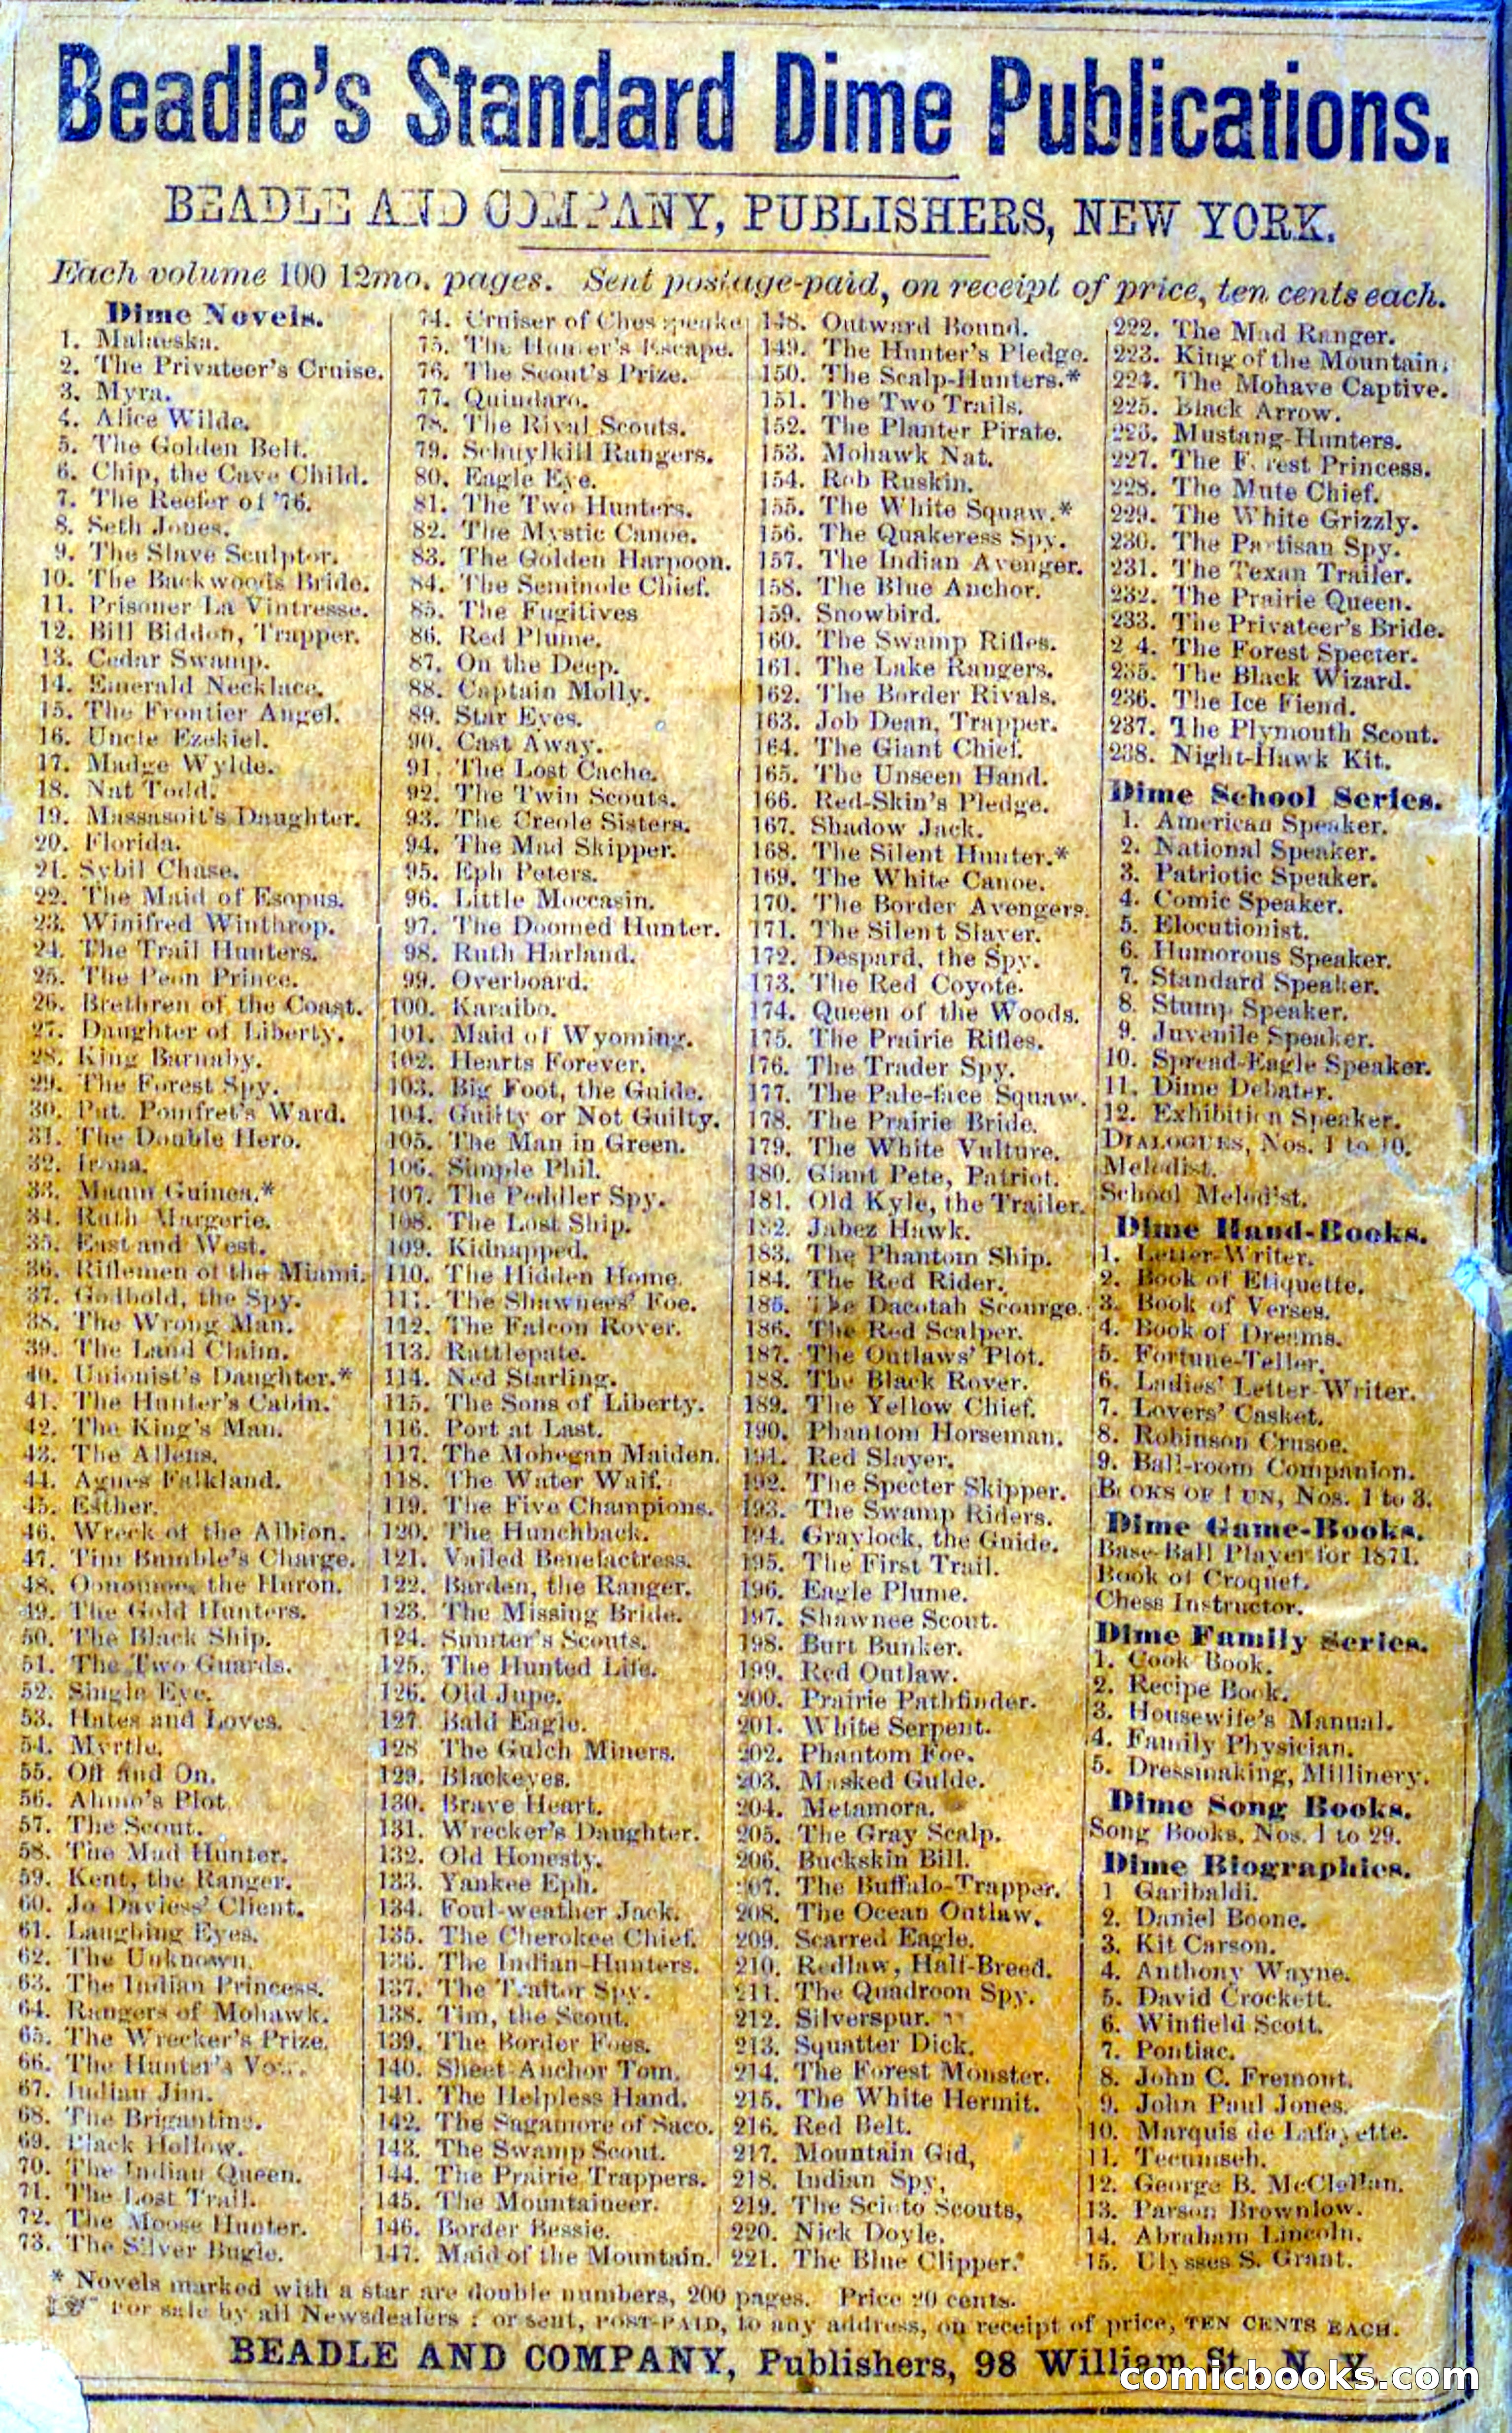 Beadle's Standard Dime Publications.
BEADLE AND COMPANY, PUBLISHERS, NEW YORK.
Each volume 100 12mo. pages. Sent postage-paid, on receipt of price, ten cents each.
Dime Novels.
1. Malaeska.
2. The Privateer's Cruise.
3. Myra.
4. Alice Wilde.
5. The Golden Belt.
6. Chip, the Cave Child.
7. The Reefer of '76.
8. Seth Jones.
9. The Slave Sculptor.
10. The Backwoods Bride.
11. Prisoner La Vintresse.
12. Bill Biddon, Trapper.
13. Cedar Swamp.
14. Emerald Necklace.
15. The Frontier Angel.
16. Uncle Ezekiel.
17. Madge Wylde.
18. Nat Todd.
19. Massasoit's Daughter.
20. Florida.
21. Sybil Chase.
22. The Maid of Esopus.
23. Winifred Winthrop.
24. The Trail Hunters.
25. The Peon Prince.
26. Brethren of the Coast.
27. Daughter of Liberty.
28. King Barnaby.
29. The Forest Spy.
30. Put. Pomfret's Ward.
31. The Double Hero.
32. Irona.
33. Maum Guinea.*
34. Ruth Margerie.
35. East and West.
36. Riflemen of the Miami.
37. Godbold, the Spy.
38. The Wrong Man.
39. The Land Claim.
40. Unionist's Daughter.*
41. The Hunter's Cabin.
42. The King's Man.
43. The Allens.
44. Agnes Falkland.
45. Esther.
46. Wreck of the Albion.
47. Tim Bumble's Charge.
48. Oonomoo, the Huron.
49. The Gold Hunters.
50. The Black Ship.
51. The Two Guards.
52. Single Eye.
53. Hates and Loves.
54. Myrtle.
55. Off and On.
56. Ahmo's Plot
57. The Scout.
58. The Mad Hunter.
59. Kent, the Ranger.
60. Jo Daviess' Client.
61. Laughing Eyes.
62. The Unknown.
63. The Indian Princess.
64. Rangers of Mohawk.
65. The Wrecker's Prize.
66. The Hunter's
67. Indian Jim.
68. The Brigantine.
69. Black Hollow.
70. The Indian Queen.
71. The Lost Trail.
72. The Moose Hunter.
73. The Silver Bugle.
74. Cruiser of Chesapeake
75. The Hunter's Escape.
76. The Scout's Prize.
77. Quindaro.
78. The Rival Scouts.
79. Schuylkill Rangers.
80. Eagle Eye.
81. The Two Hunters.
82. The Mystic Canoe.
83. The Golden Harpoon.
84. The Seminole Chief.
85. The Fugitives
86. Red Plume.
87. On the Deep.
88. Captain Molly.
89. Star Eyes.
90. Cast Away.
91. The Lost Cache.
92. The Twin Scouts.
93. The Creole Sisters.
94. The Mad Skipper.
95. Eph Peters.
96. Little Moccasin.
97. The Doomed Hunter.
98. Ruth Harland.
99. Overboard.
100. Karaibo.
101. Maid of Wyoming.
102. Hearts Forever.
103. Big Foot, the Guide.
104. Guilty or Not Guilty.
105. The Man in Green.
106. Simple Phil.
107. The Peddler Spy.
108. The Lost Ship.
109. Kidnapped.
110. The Hidden Home.
111. The Shawnees' Foe.
112. The Falcon Rover.
113. Rattlepate.
114. Ned Starling.
115. The Sons of Liberty.
116. Port at Last.
117. The Mohegan Maiden.
118. The Water Waif.
119. The Five Champions.
120. The Hunchback.
121. Vailed Benefactress.
122. Barden, the Ranger.
123. The Missing Bride.
124. Sumter's Scouts.
125. The Hunted Life.
126. Old Jupe.
127. Bald Eagle.
128 The Gulch Miners.
129. Blackeyes.
130. Brave Heart.
131. Wrecker's Daughter.
132. Old Honesty.
133. Yankee Eph.
134. Foul-weather Jack.
135. The Cherokee Chief.
136. The Indian-Hunters.
137. The Traitor Spy.
138. Tim, the Scout.
139. The Border Foes.
140. Sheet-Anchor Tom.
141. The Helpless Hand.
142. The Sagamore of Saco.
143. The Swamp Scout.
144. The Prairie Trappers.
145. The Mountaineer.
146. Border Bessie.
147. Maid of the Mountain.
148. Outward Bound.
149. The Hunter's Pledge.
150. The Scalp-Hunters.*
151. The Two Trails.
152. The Planter Pirate.
153. Mohawk Nat.
154. Rob Ruskin.
155. The White Squaw.*
156. The Quakeress Spy.
157. The Indian Avenger.
158. The Blue Anchor.
159. Snowbird.
160. The Swamp Rifles.
161. The Lake Rangers.
162. The Border Rivals.
163. Job Dean, Trapper.
164. The Giant Chief.
165. The Unseen Hand.
166. Red-Skin's Pledge.
167. Shadow Jack.
168. The Silent Hunter.*
169. The White Canoe.
170. The Border Avengers.
171. The Silent Slayer.
172. Despard, the Spy.
173. The Red Coyote.
174. Queen of the Woods.
175. The Prairie Rifles.
176. The Trader Spy.
177. The Pale-face Squaw.
178. The Prairie Bride.
179. The White Vulture.
180. Giant Pete, Patriot.
181. Old Kyle, the Trailer.
182. Jabez Hawk.
183. The Phantom Ship.
184. The Red Rider.
185. The Dacotah Scourge.
186. The Red Scalper.
187. The Outlaws' Plot.
188. The Black Rover.
189. The Yellow Chief.
190. Phantom Horseman.
191. Red Slayer.
192. The Specter Skipper.
193. The Swamp Riders.
194. Graylock, the Guide.
195. The First Trail.
196. Eagle Plume.
197. Shawnee Scout.
198. Burt Bunker.
199. Red Outlaw.
200. Prairie Pathfinder.
201. White Serpent.
202. Phantom Foe.
203. Masked Guide.
204. Metamora.
205. The Gray Scalp.
206. Buckskin Bill.
207. The Buffalo-Trapper.
208. The Ocean Outlaw.
209. Scarred Eagle.
210. Redlaw, Half-Breed.
211. The Quadroon Spy.
212. Silverspur.
213. Squatter Dick.
214. The Forest Monster.
215. The White Hermit.
216. Red Belt.
217. Mountain Gid,
218. Indian Spy,
219. The Scioto Scouts,
220. Nick Doyle.
221. The Blue Clipper.*
222. The Mad Ranger.
223. King of the Mountain.
224. The Mohave Captive.
225. Black Arrow.
226. Mustang-Hunters.
227. The Forest Princess.
228. The Mute Chief.
229. The White Grizzly.
230. The Partisan Spy.
231. The Texan Trailer.
232. The Prairie Queen.
233. The Privateer's Bride.
2 4. The Forest Specter.
235. The Black Wizard.
236. The Ice Fiend.
237. The Plymouth Scout.
238. Night-Hawk Kit.
Dime School Series.
1. American Speaker.
2. National Speaker.
3. Patriotic Speaker.
4. Comic Speaker.
5. Elocutionist.
6. Humorous Speaker.
7. Standard Speaker.
8. Stump Speaker.
9. Juvenile Speaker.
10. Spread-Eagle Speaker.
11. Dime Debater.
12. Exhibition Speaker.
DIALOGUES, Nos. 1 to 10.
Melodist.
School Melodist.
Dime Hand-Books.
1. Letter-Writer.
2. Book of Etiquette.
3. Book of Verses.
4. Book of Dreams.
5. Fortune-Teller.
6. Ladies' Letter-Writer.
7. Lovers' Casket.
8. Robinson Crusoe.
9. Ball-room Companion.
BOOKS OF FUN, Nos. 1 to 3.
Dime Game-Books.
Base-Ball Player for 1871.
Book of Croquet.
Chess Instructor.
Dime Family Series.
1. Cook Book.
2. Recipe Book.
3. Housewife's Manual.
4. Family Physician.
5. Dressmaking, Millinery.
Dime Song Books.
Song Books, Nos. 1 to 29.
Dime Biographies.
1 Garibaldi.
2. Daniel Boone.
3. Kit Carson.
4. Anthony Wayne.
5. David Crockett.
6. Winfield Scott.
7. Pontiac.
8. John C. Fremont.
9. John Paul Jones.
10. Marquis de Lafayette.
11. Tecumseh.
12. George B. McClellan.
13. Parson Brownlow.
14. Abraham Lincoln.
15. Ulysses S. Grant.
* Novels marked with a star are double numbers, 200 pages. Price 20 cents.
☞ For sale by all Newsdealers; or sent, POST-PAID, to any address, on receipt of price, TEN CENTS EACH.
BEADLE AND COMPANY, Publishers, 98 William St., N. Y.
comicbooks.com